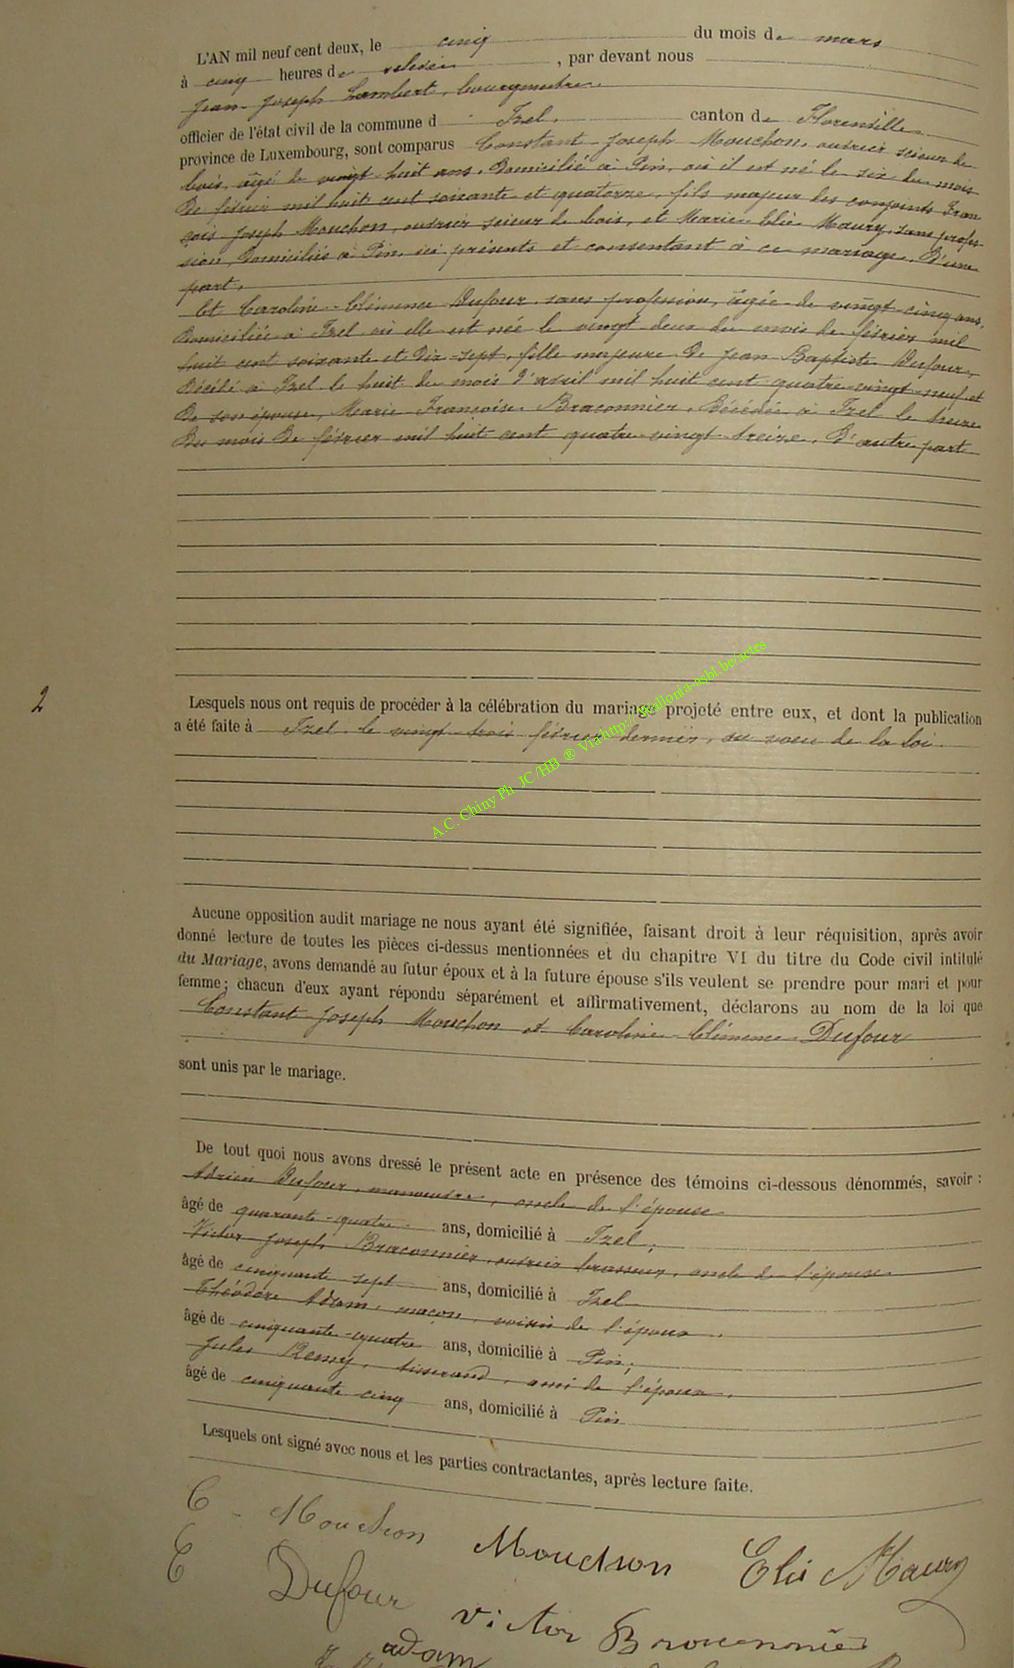 L'AN mil neuf cent deux, le cinq du mois de mars
à cinq heures de relevée, par devant nous
Jean-Joseph Lambert, bourgmestre.
officier de l'état civil de la commune d Izel. canton de Florenville
province de Luxembourg, sont comparus Constant-Joseph Mouchon, ouvrier scieur de
bois, âgé de vingt-huit ans, Domicilié à Pin, où il est né le six du mois
De février mil huit cent soixante et quatorze, fils majeur des conjoints Fran
çois-Joseph Mouchon, ouvrier scieur de bois, et Marie-Elie Maury, sans profes-
sion, Domiciliés à Pin, ici présents et consentant à ce mariage, D'une
part.
Et Caroline-Clémence Dufour, sans profession, âgée de vingt-cinq ans,
Domiciliée à Izel où elle est née le vingt-deux du mois de février mil
huit cent soixante et Dix-sept, fille majeure De Jean-Baptiste Dufour,
Décédé à Izel le huit du mois d'avril mil huit cent quatre-vingt-neuf et
De son épouse, Marie-Françoise Braconnier, Décédée à Izel le
Du mois De février mil huit cent quatre-vingt-treize, D'autre part
2
Lesquels nous ont requis de procéder à la célébration du mariage projeté entre eux, et dont la publication
a été faite à Izel le vingt-trois février dernier, au voeu de la loi.
A.C. Chiny Ph JC/HB ® Via http://wallonia-asbl.be/actes
Aucune opposition audit mariage ne nous ayant été signifiée, faisant droit à leur réquisition, après avoir
donné lecture de toutes les pièces ci-dessus mentionnées et du chapitre VI du titre du Code civil intitulé
du Mariage, avons demandé au futur époux et à la future épouse s'ils veulent se prendre pour mari et pour
femme; chacun d'eux ayant répondu séparément et affirmativement, déclarons au nom de la loi que
Constant-Joseph Mouchon et Caroline-Clémence Dufour
sont unis par le mariage.
De tout quoi nous avons dressé le présent acte en présence des témoins ci-dessous dénommés, savoir :
Adrien Dufour, manoeuvre, oncle de l'épouse
âgé de quarante-quatre ans, domicilié à Izel;
Victor-Joseph Braconnier, ouvrier brasseur, oncle de l'épouse
âgé de cinquante-sept ans, domicilié à Izel
Théodore Adam, maçon, voisin de l'époux,
âgé de cinquante-quatre ans, domicilié à Pin;
Jules Remy, tisserand, ami de l'époux,
âgé de cinquante cinq ans, domicilié à Pin
Lesquels ont signé avec nous et les parties contractantes, après lecture faite.
C. Mouchon Mouchon Elie Maury
C Dufour Victor Braconnier
adam